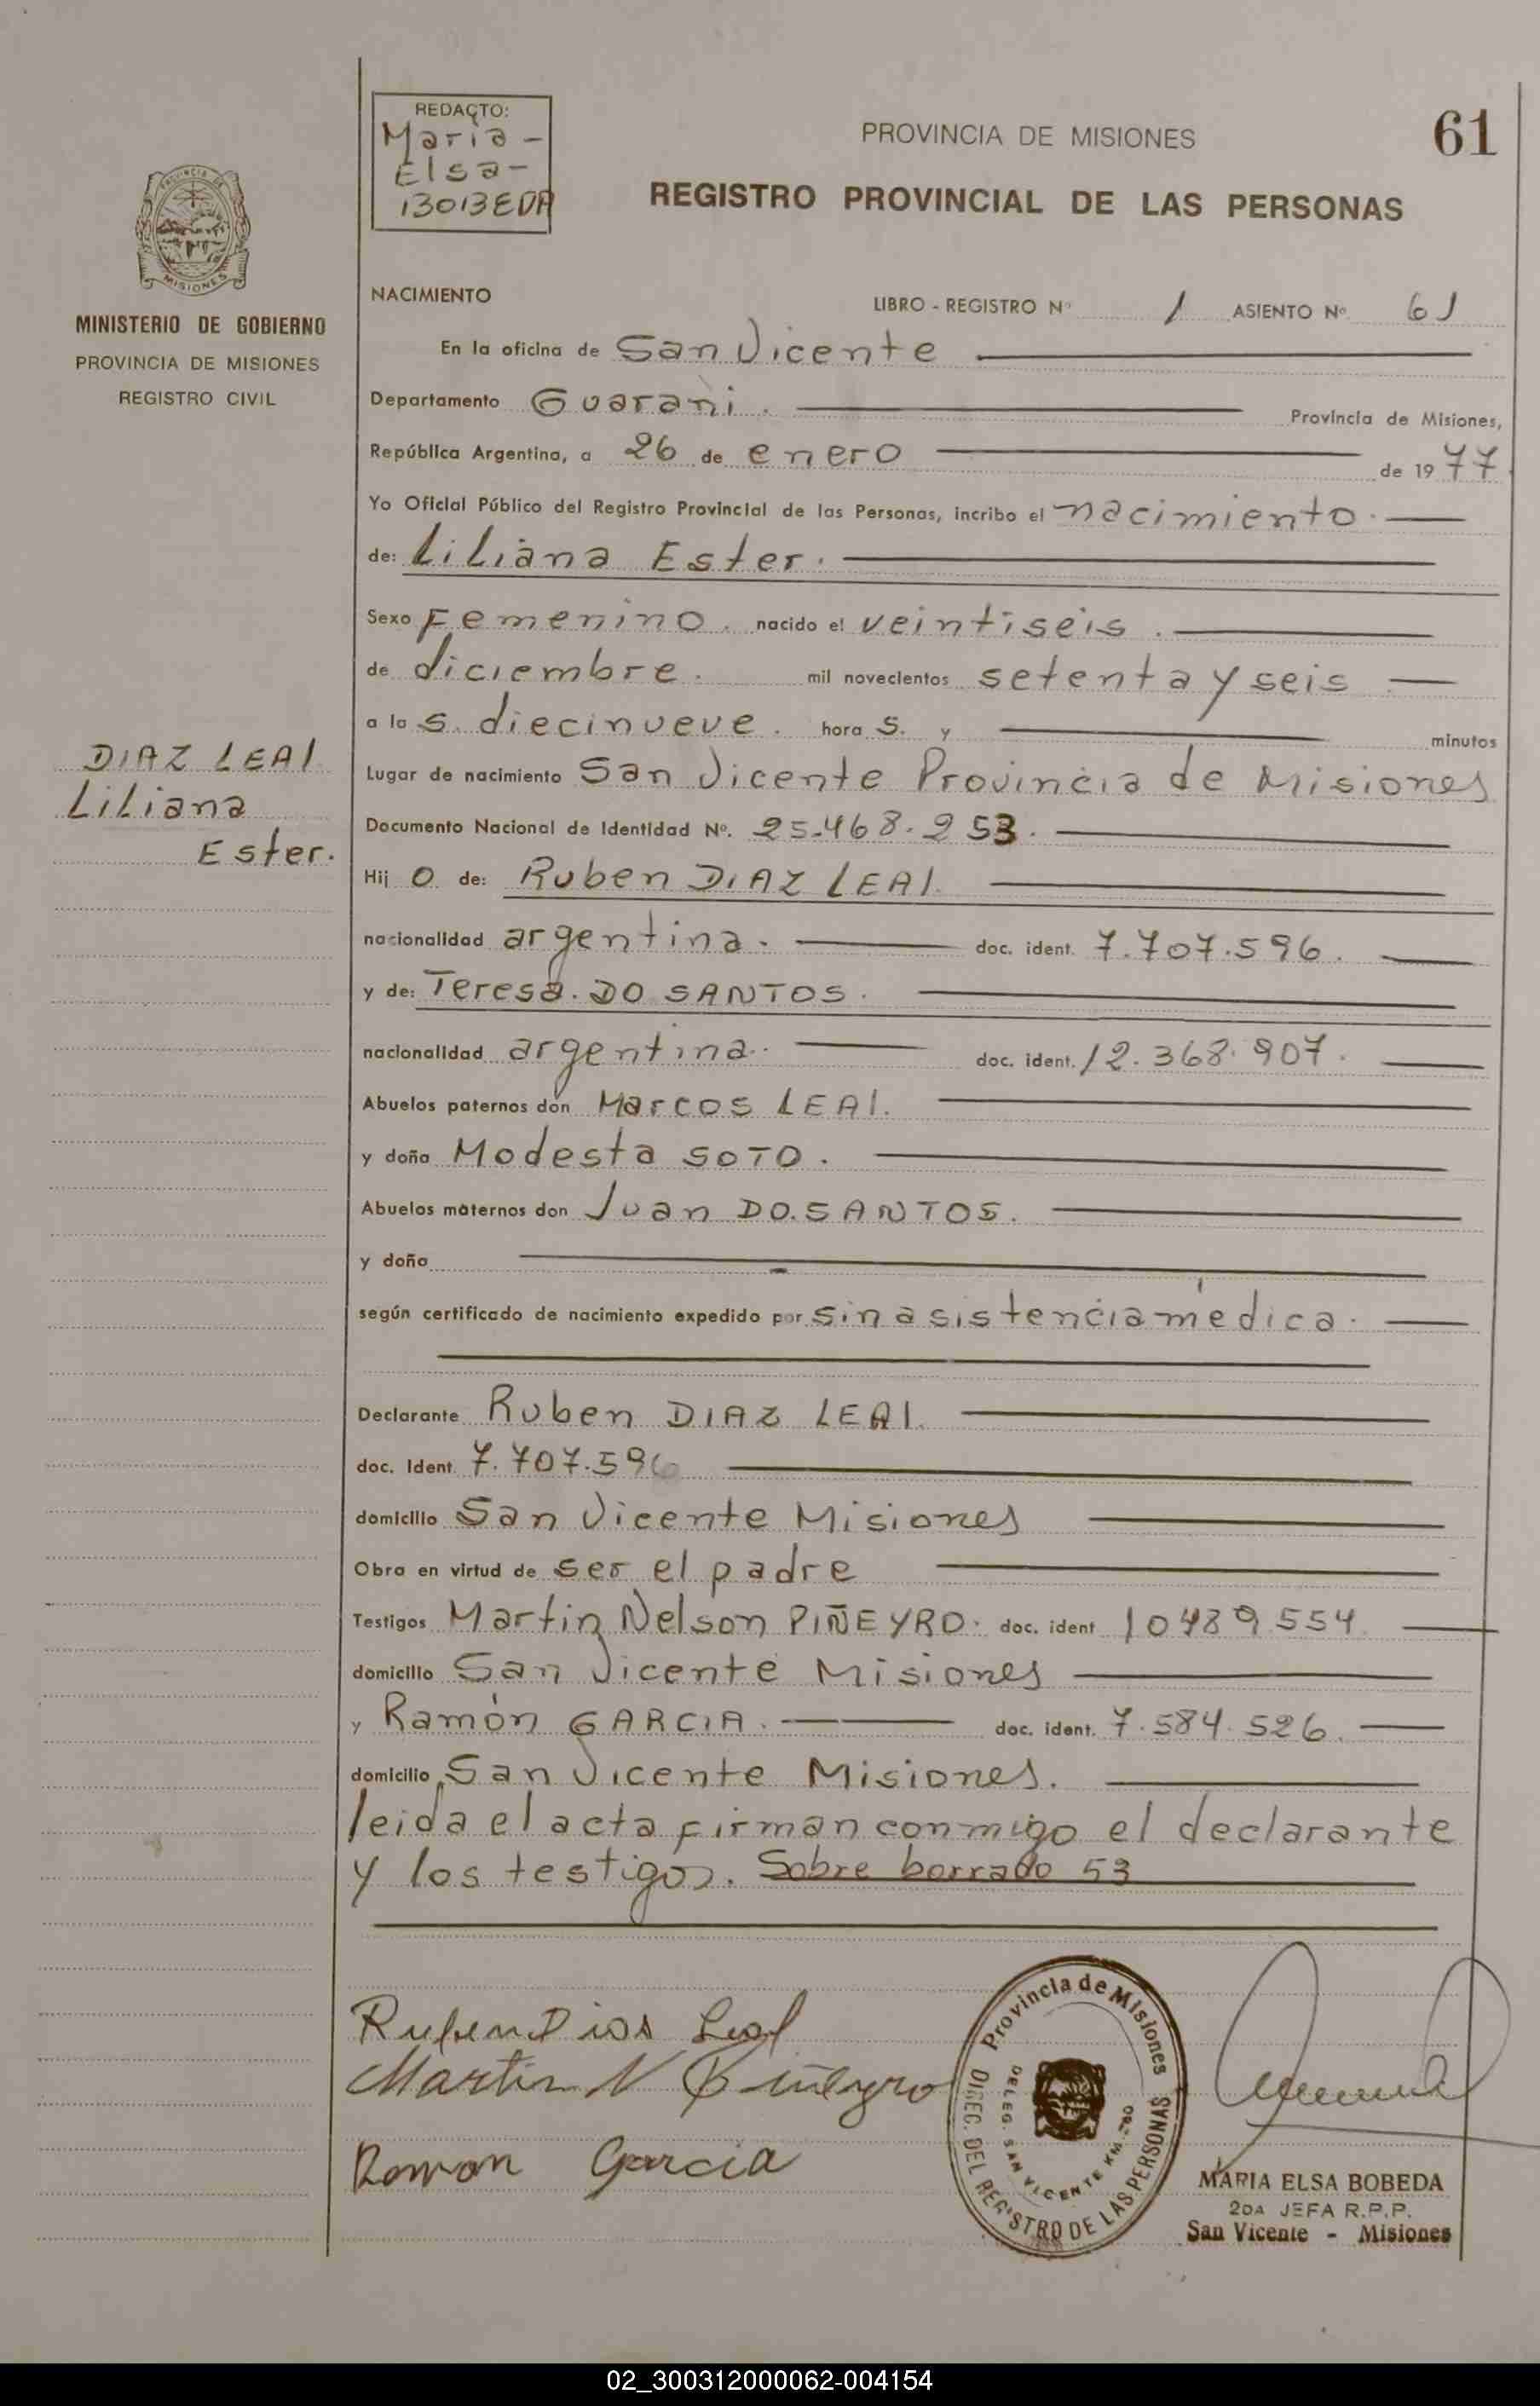 REDACTO:
Maria -
Elsa -
BOBEDA
PROVINCIA DE MISIONES
61
REGISTRO PROVINCIAL DE LAS PERSONAS
PROVINCIA DE
MISIONES
MINISTERIO DE GOBIERNO
PROVINCIA DE MISIONES
REGISTRO CIVIL
NACIMIENTO
LIBRO - REGISTRO Nº 1 ASIENTO Nº 61
En la oficina de San Vicente
Departamento Guarani. Provincia de Misiones,
República Argentina, a 26 de enero de 1977.
Yo Oficial Público del Registro Provincial de las Personas, incribo el nacimiento.
de: Liliana Ester.
Sexo Femenino. nacido el veintiseis.
de diciembre. mil novecientos setenta y seis
a la s. diecinueve. hora s. y minutos
DIAZ LEAL
Liliana
Ester.
Lugar de nacimiento San Vicente Provincia de Misiones
Documento Nacional de Identidad Nº. 25.468.253.
Hij o de: Ruben DIAZ LEAL.
nacionalidad argentina. doc. ident. 7.707.596.
y de: Teresa. DO SANTOS.
nacionalidad argentina. doc. ident. 12.368.907.
Abuelos paternos don Marcos LEAL.
y doña Modesta SOTO.
Abuelos maternos don Juan DO.SANTOS.
y doña
según certificado de nacimiento expedido por sin asistencia médica.
Declarante Ruben DIAZ LEAL.
doc. Ident. 7.707.596
domicilio San Vicente Misiones
Obra en virtud de ser el padre
Testigos Martin Nelson PIÑEYRO. doc. ident 10489554
domicilio San Vicente Misiones
y Ramón GARCIA. doc. ident. 7.584.526.
domicilio San Vicente Misiones.
leida el acta firman conmigo el declarante
y los testigos. Sobre borrado 53
Ruben Dias Leal
Martin N Piñeyro
Ramon Garcia
Provincia de Misiones
DIREC. DEL REGISTRO DE LAS PERSONAS
DELEG. SAN VICENTE KM.
MARIA ELSA BOBEDA
2DA JEFA R.P.P.
San Vicente - Misiones
02_300312000062-004154